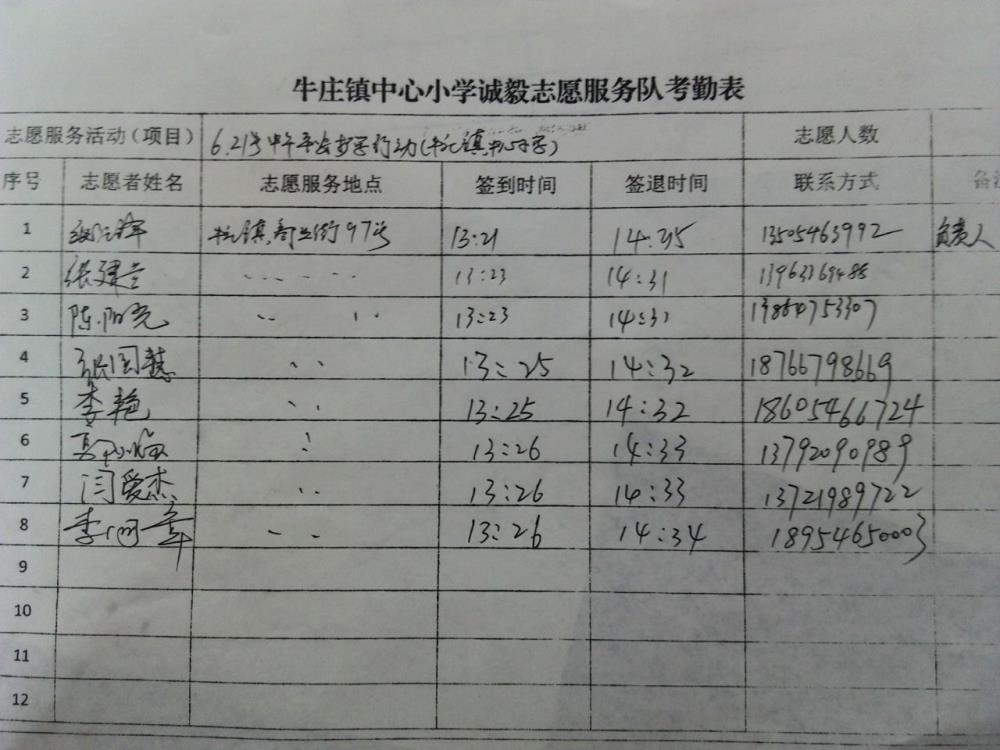 牛庄镇中心小学诚毅志愿服务队考勤表
志愿服务活动（项目） 6.21号中午 行动(牛庄镇中心小学) 志愿人数
序号 志愿者姓名 志愿服务地点 签到时间 签退时间 联系方式 备
1 牛庄镇商业街97号 13:21 14:35 13505463992 负责人
2 张建 13:23 14:31 13963369488
3 陈阳光 13:23 14:31 13864753307
4 张国慧 13:25 14:32 18766798669
5 李艳 13:25 14:32 18605466724
6 13:26 14:33 13792090989
7 闫爱杰 13:26 14:33 13721989722
8 李 13:26 14:34 18954650003
9
10
11
12